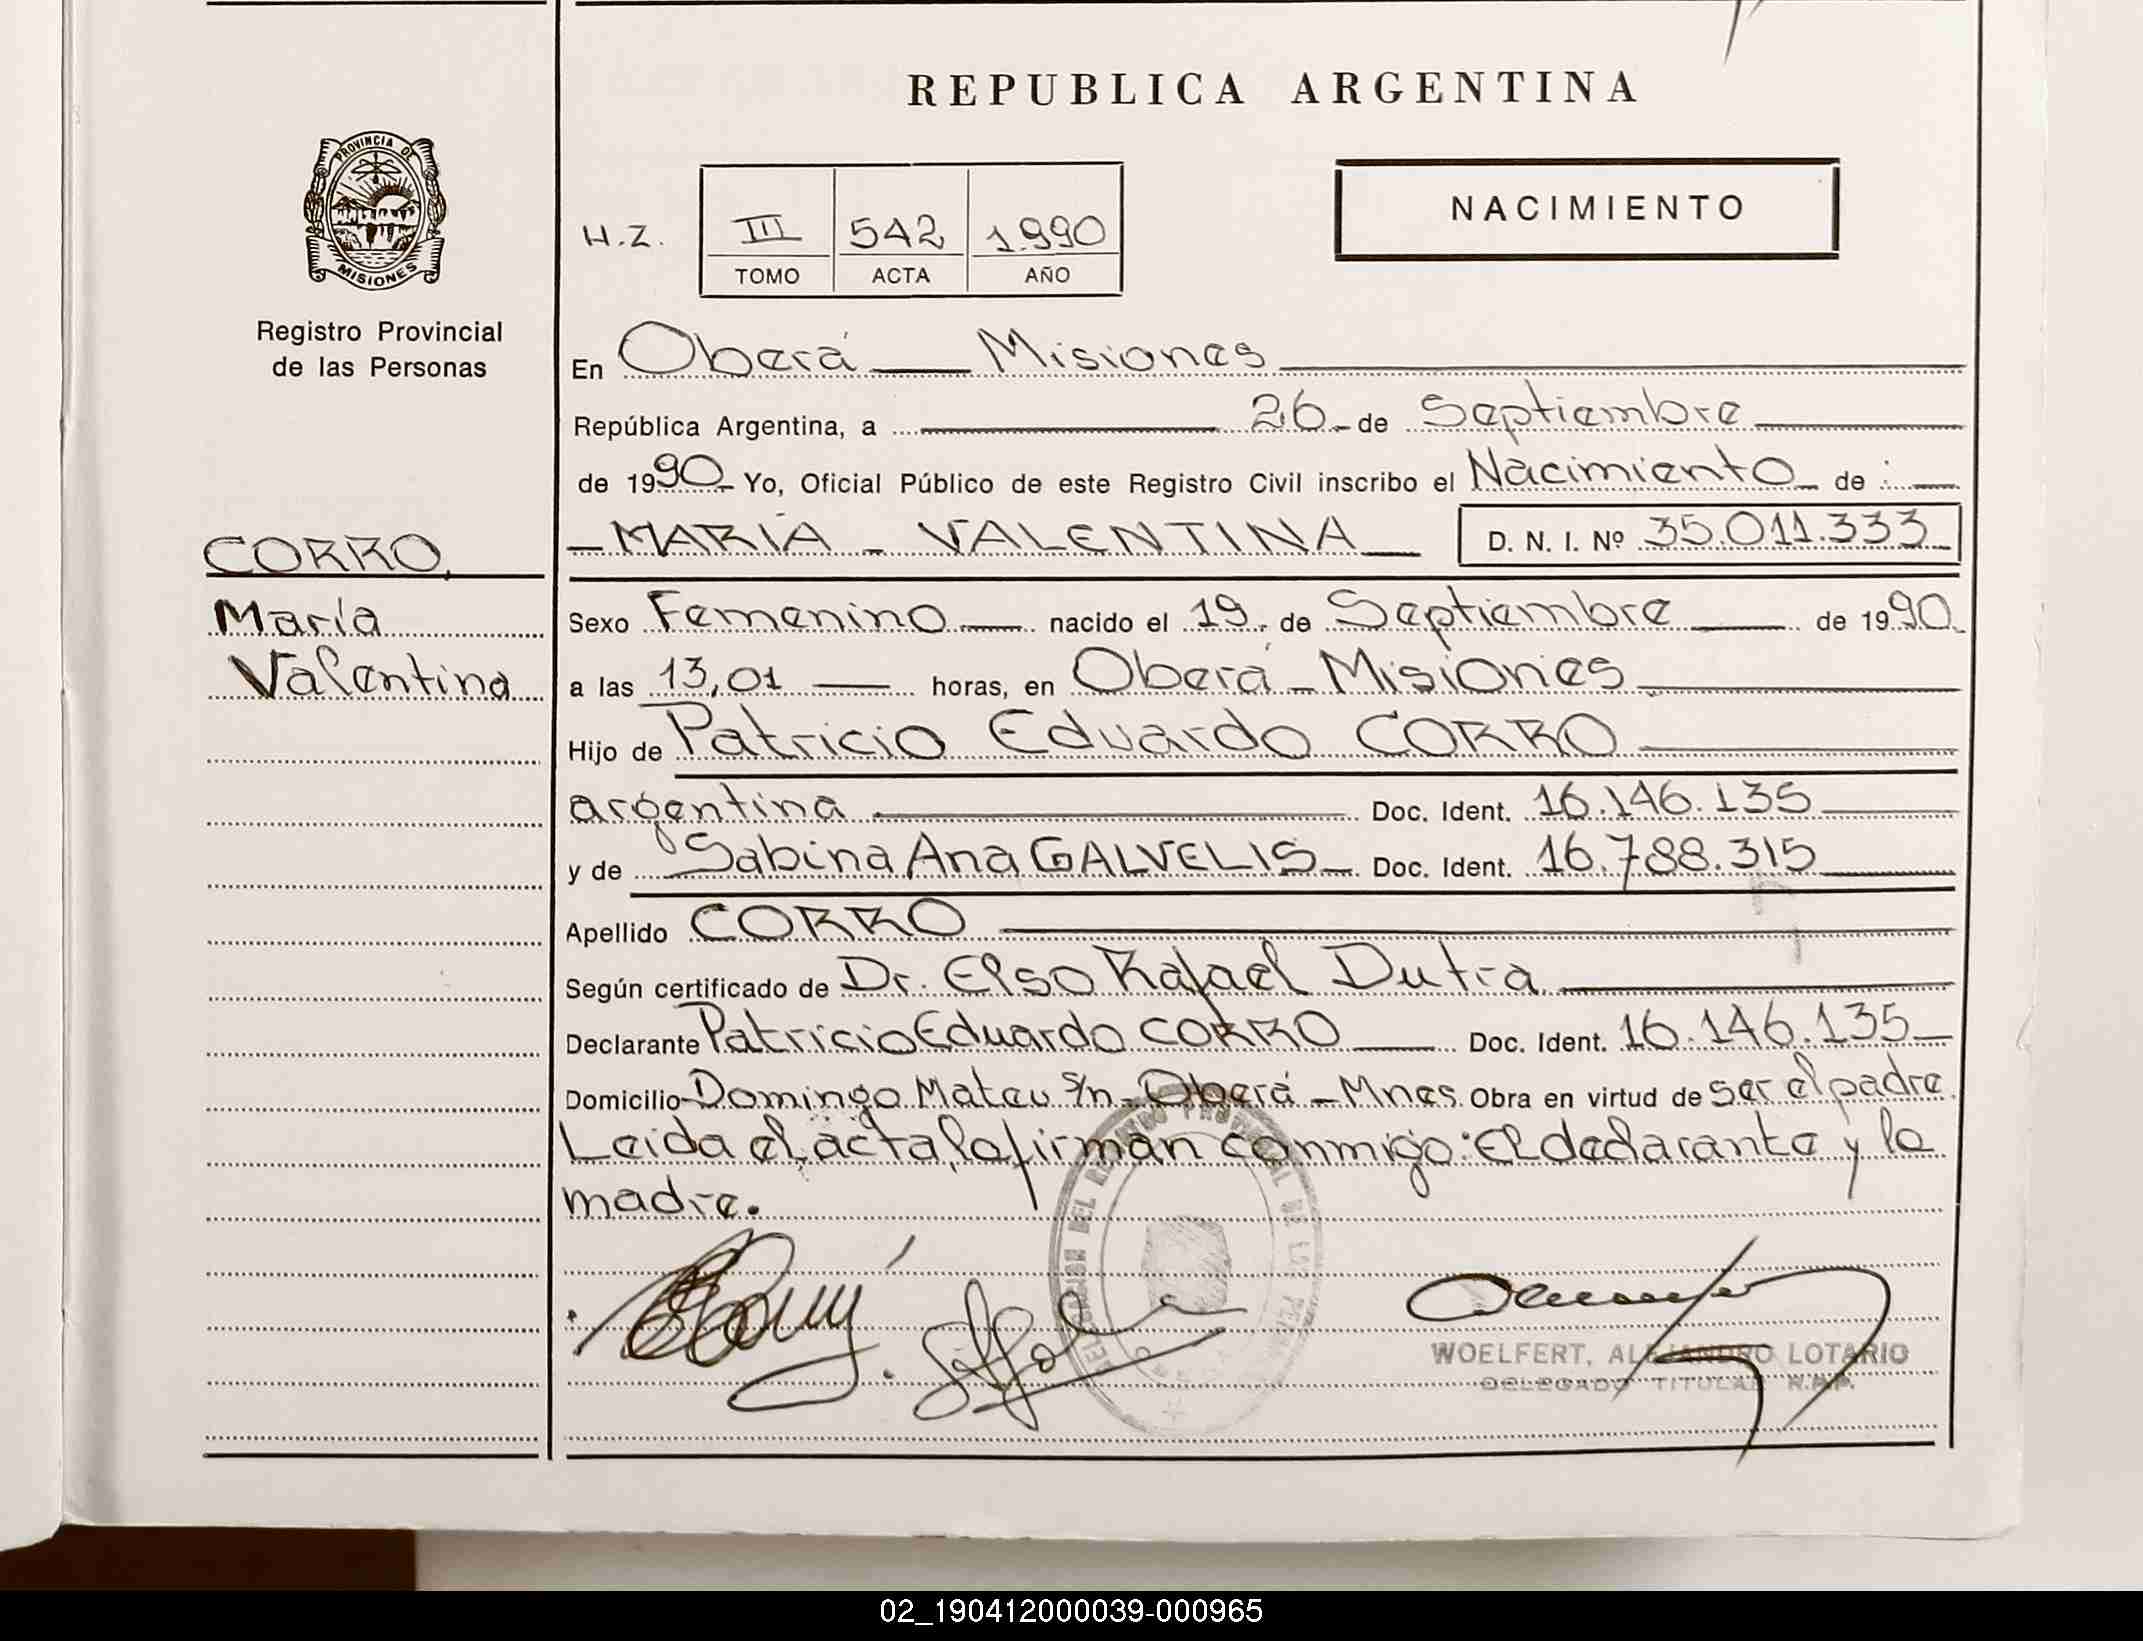 REPUBLICA ARGENTINA
PROVINCIA DE
MISIONES
Registro Provincial
de las Personas
H.Z.
III 542 1.990
TOMO ACTA AÑO
NACIMIENTO
En Oberá Misiones
República Argentina, a 26 de Septiembre
de 1990 Yo, Oficial Público de este Registro Civil inscribo el Nacimiento de:
CORRO,
María
Valentina
MARÍA - VALENTINA D. N. I. Nº 35.011.333
Sexo Femenino nacido el 19. de Septiembre de 1990
a las 13,01 horas, en Oberá - Misiones
Hijo de Patricio Eduardo CORRO
argentina Doc. Ident. 16.146.135
y de Sabina Ana GALVELIS Doc. Ident. 16.788.315
Apellido CORRO
Según certificado de Dr. Elso Rafael Dutra
Declarante Patricio Eduardo CORRO Doc. Ident. 16.146.135
Domicilio Domingo Mateu s/n - Oberá - Mnes. Obra en virtud de ser el padre.
Leida el acta, la firman conmigo: El declarante y la
madre.
DEL REGISTRO PROVINCIAL DE LAS
WOELFERT, ALEJANDRO LOTARIO
DELEGADO TITULAR R.P.P.
02_190412000039-000965